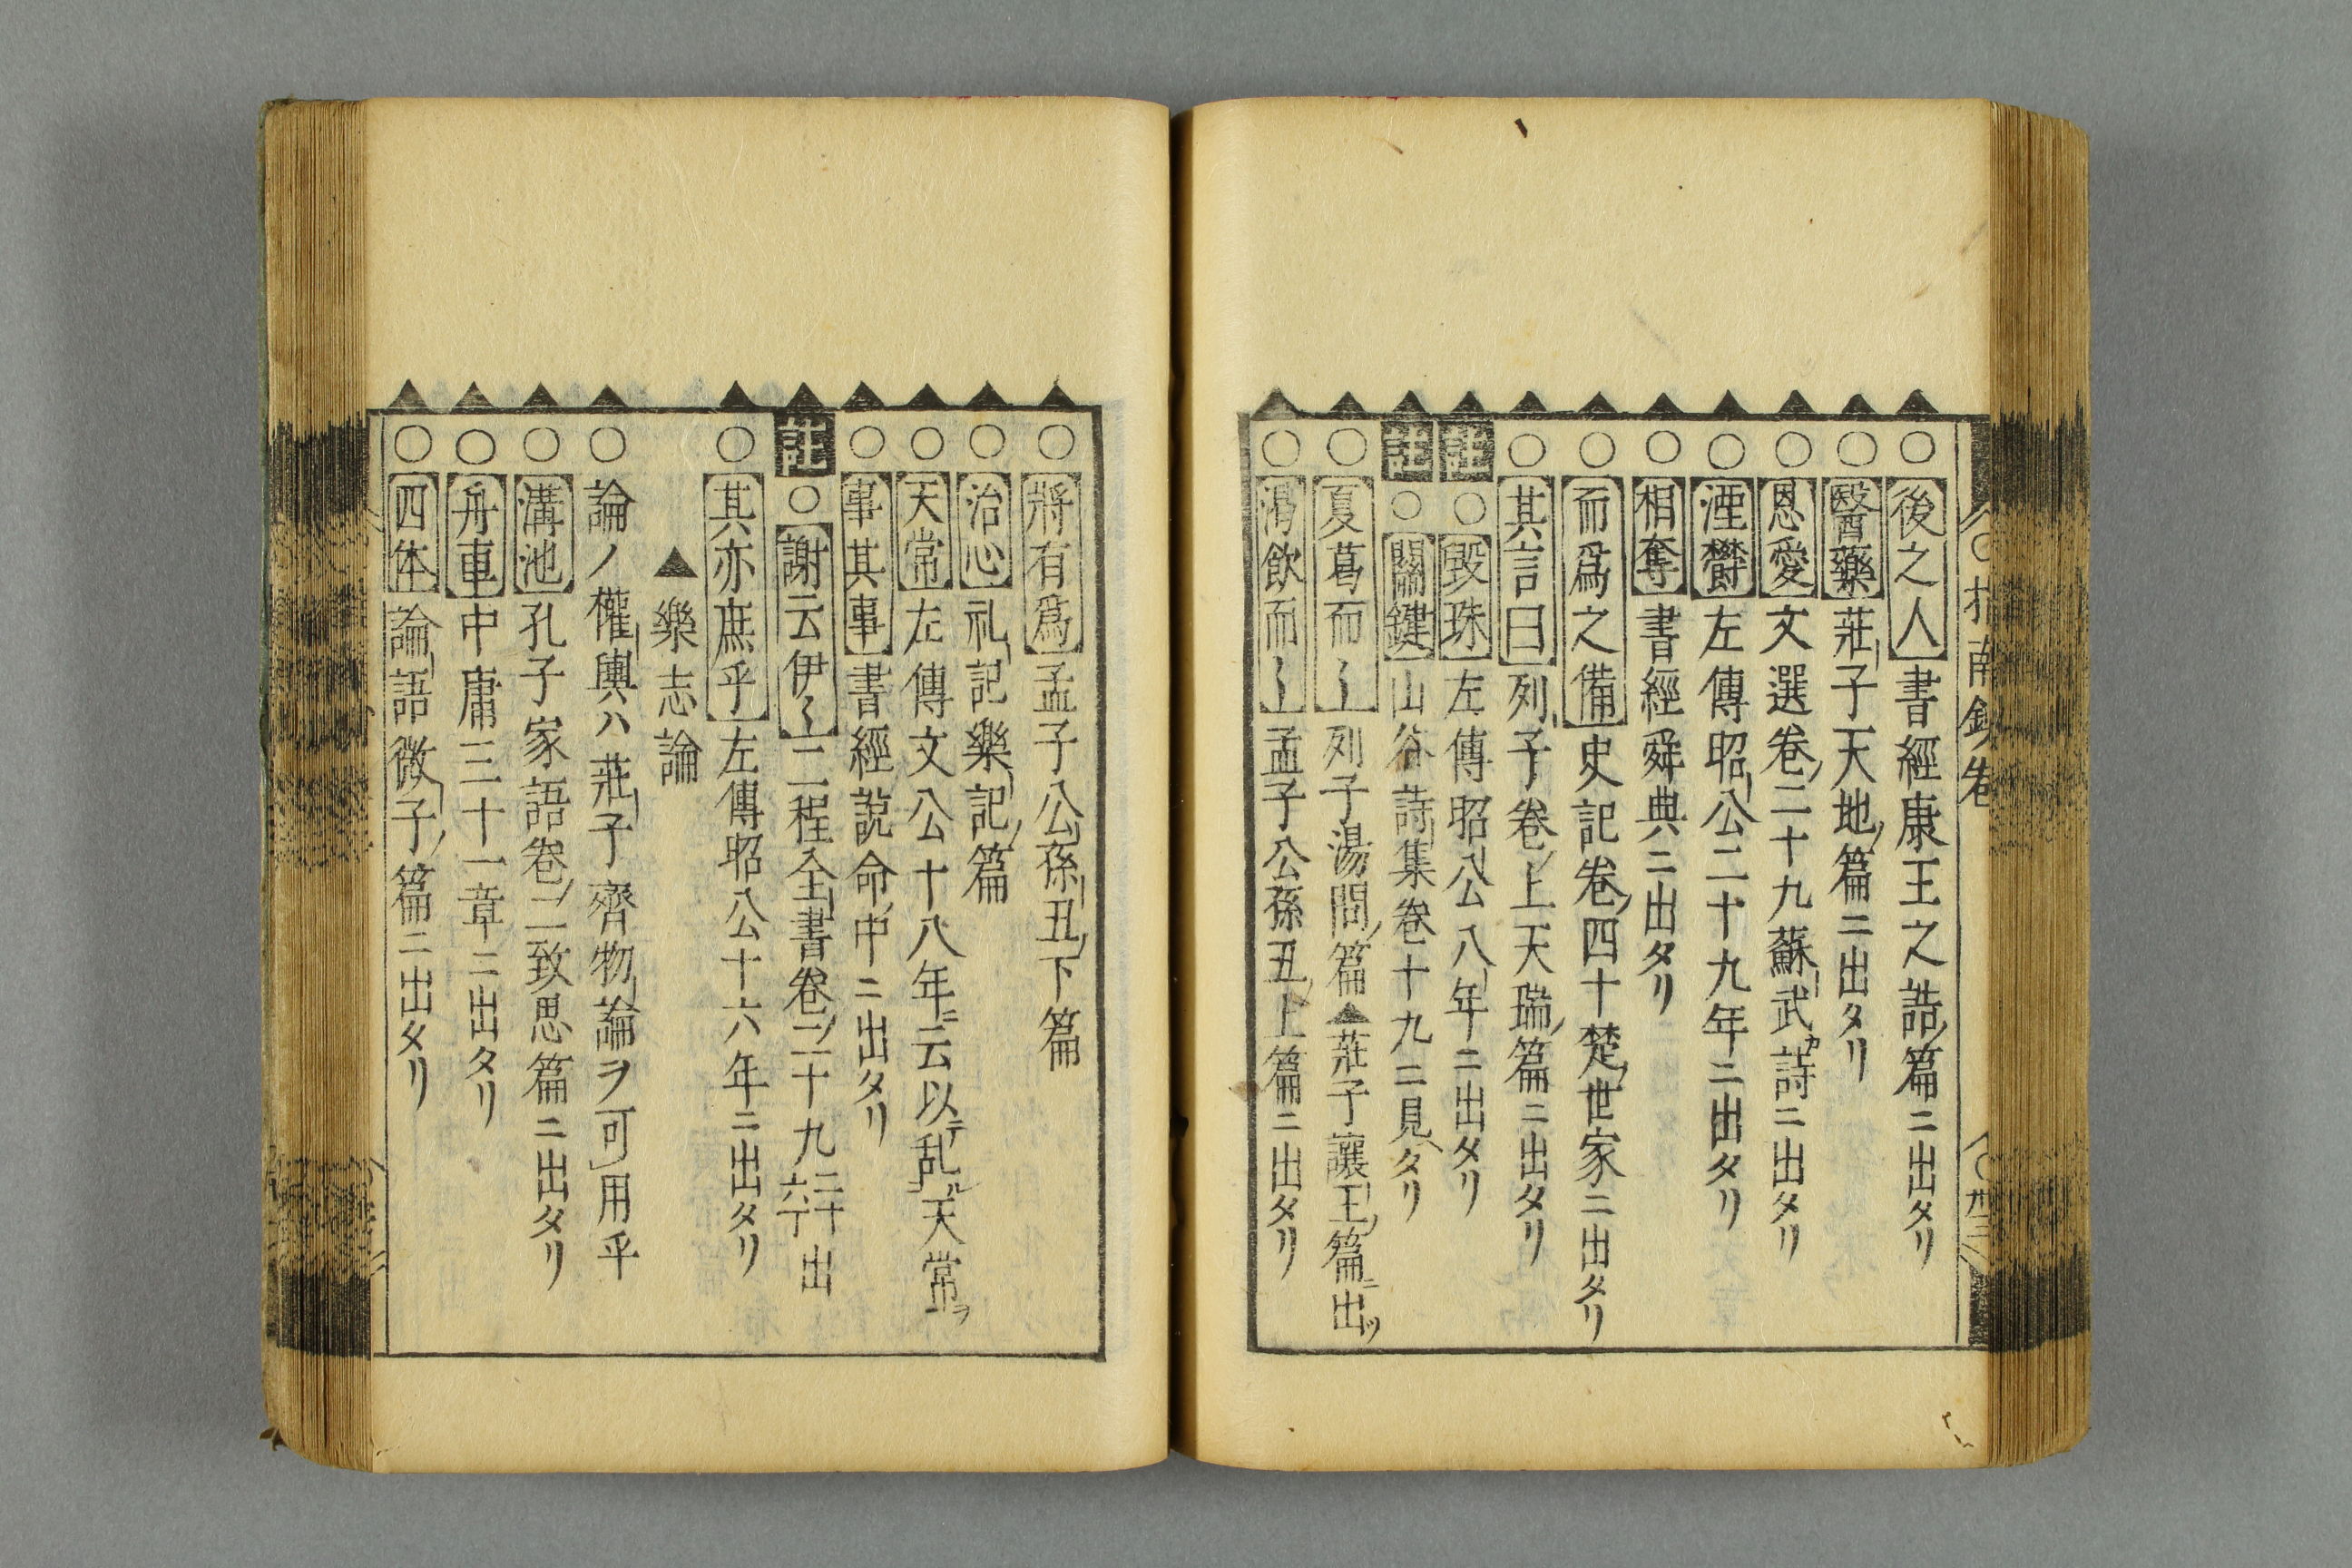 ○後之人 書經康王之誥ノ篇ニ出タリ
○醫藥 莊子天地ノ篇ニ出タリ
○恩愛 文選卷ノ二十九蘇武カ詩ニ出タリ
○湮欝 左傳昭公二十九年ニ出タリ
○相奪 書經舜典ニ出タリ
○而爲之備 史記卷ノ四十楚ノ世家ニ出タリ
○其言曰 列子卷ノ上天瑞ノ篇ニ出タリ
註○毀珠 左傳昭公八年ニ出タリ
註○關鍵 山谷詩集卷十九ニ見ヘタリ
○夏葛而〻 列子湯問ノ篇▲莊子讓王ノ篇ニ出ツ
○渇飲而〻 孟子公孫丑ノ上篇ニ出タリ
○將有爲 孟子公孫丑ノ下篇
○治心 礼記樂記ノ篇
○天常 左傳文公十八年ニ云以テ乱ル天常ヲ
○事其事 書經說命ノ中ニ出タリ
註○謝云伊〻 二程全書卷ノ二十九二十六丁出
○其亦庶乎 左傳昭公十六年ニ出タリ
▲樂志論
○論ノ權輿ハ莊子齊物論ヲ可用乎
○溝池 孔子家語卷ノ二致思篇ニ出タリ
○舟車 中庸三十一章ニ出タリ
○四体 論語微子ノ篇ニ出タリ